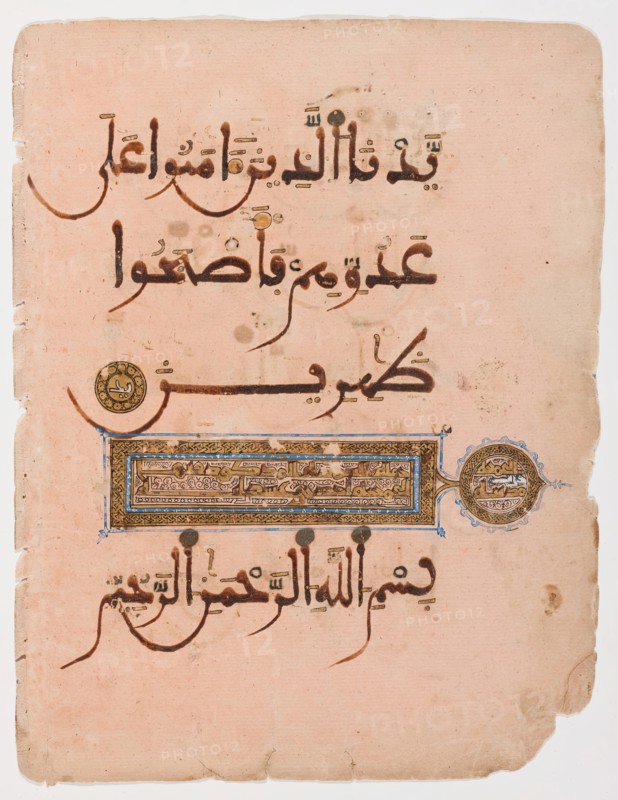 يَّدْنَا الَّذِينَ ءَامَنُوا عَلَى
عَدُوِّهِمْ فَأَصْبَحُوا
ظَهِرِينَ
بِسْمِ اللَّهِ الرَّحْمَنِ الرَّحِيمِ
PHOTO12